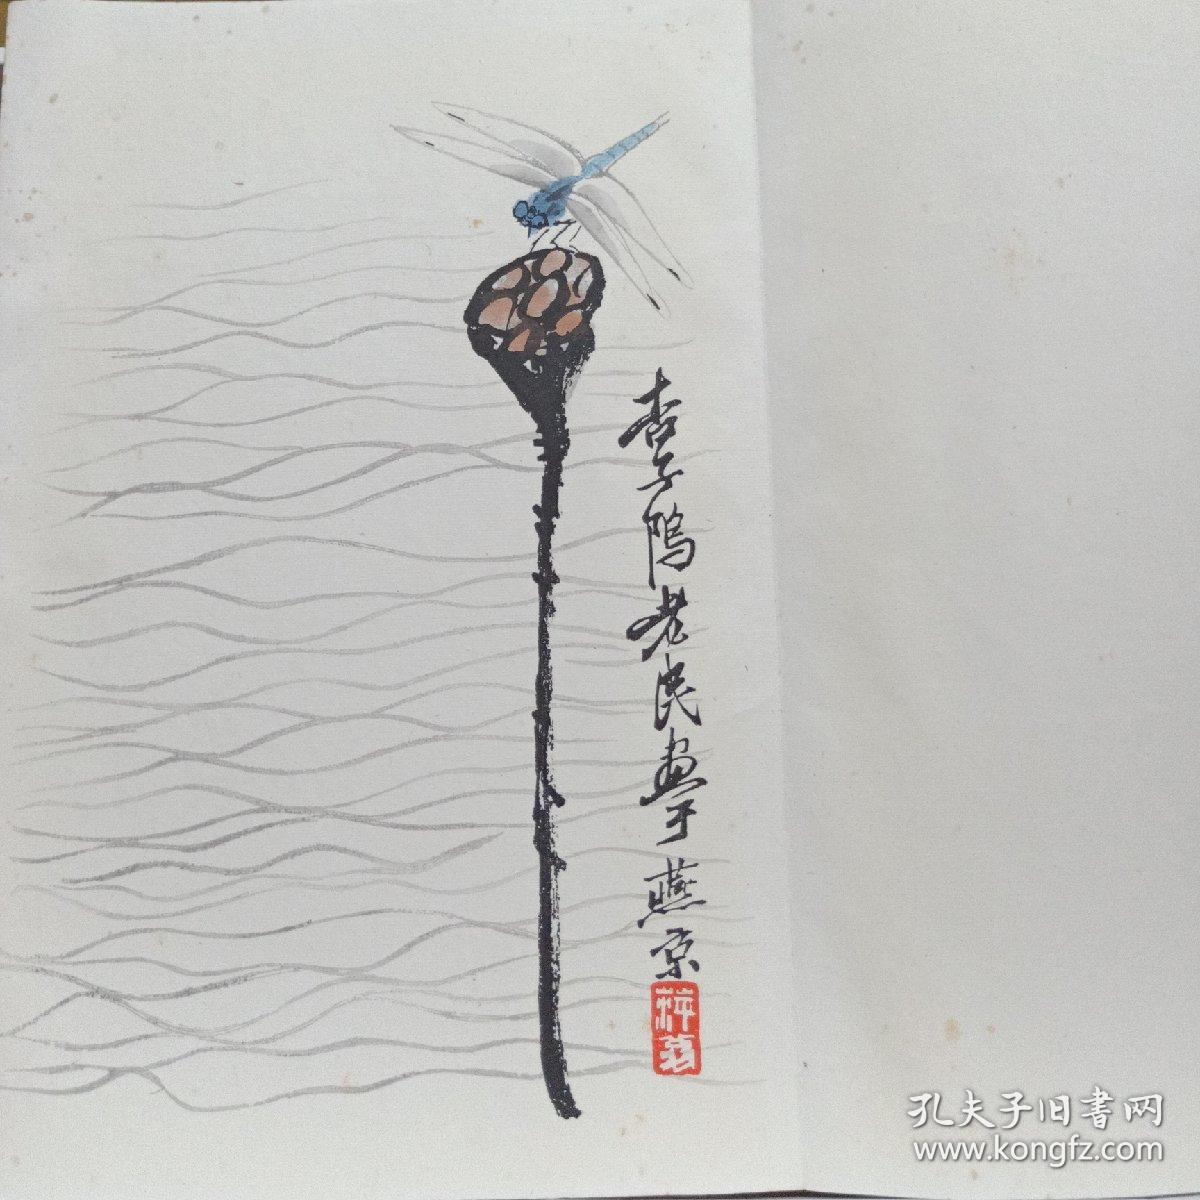 杏子隖老民畫于燕京
萍翁
孔夫子旧书网
www.kongfz.com